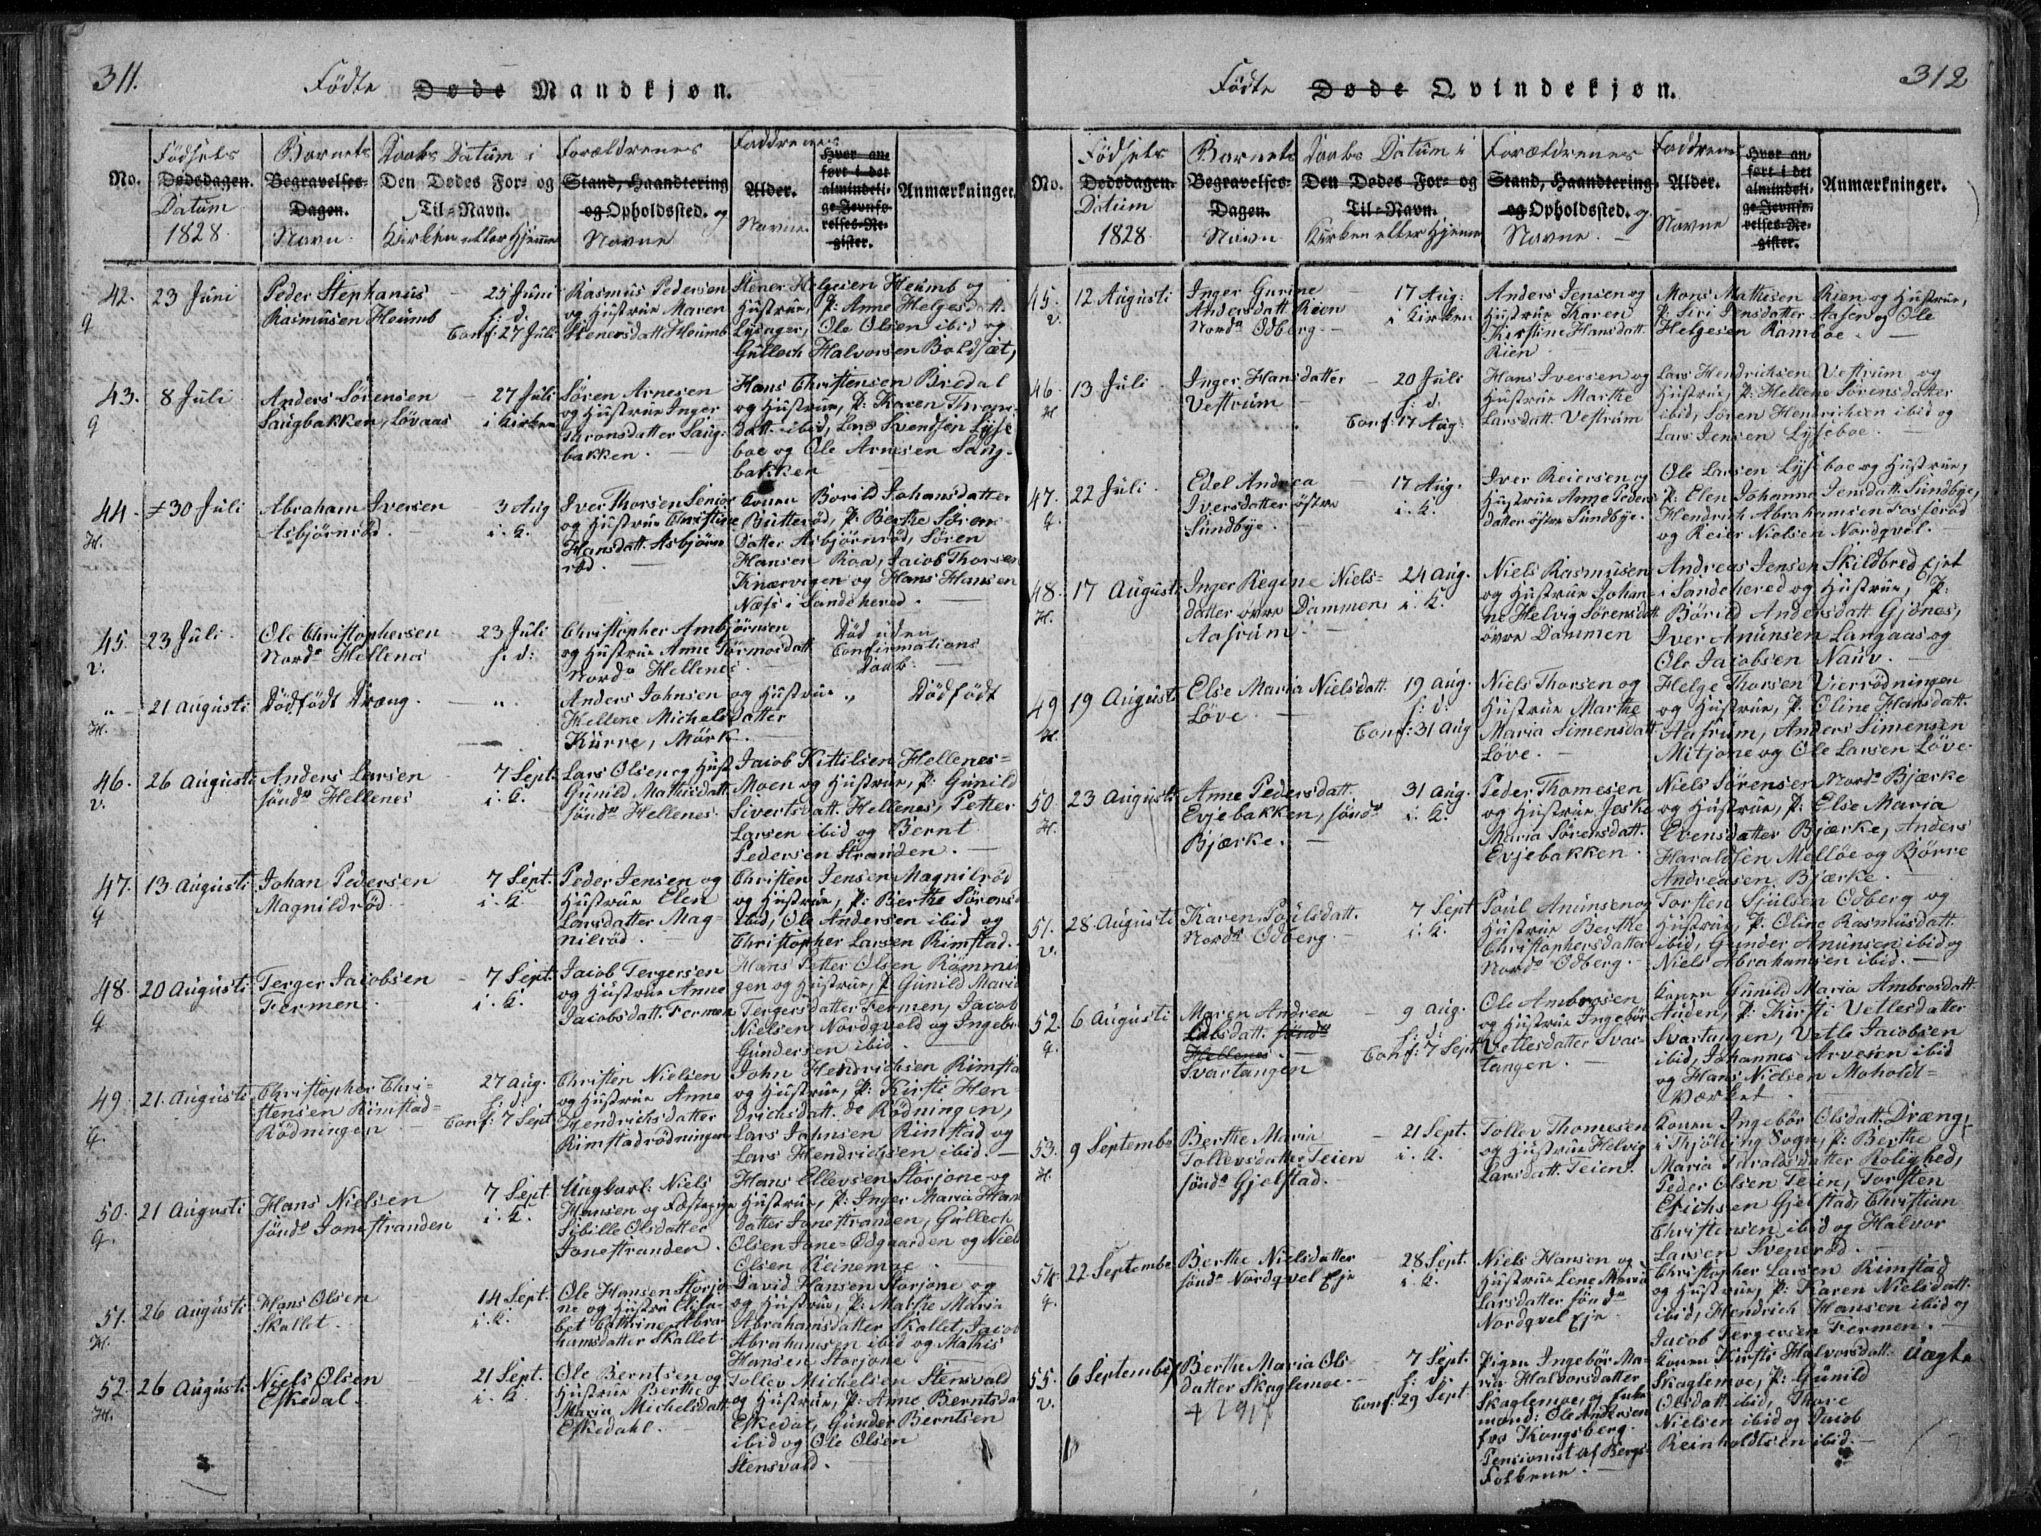 311.
Fødte Døde Mandkjøn.
No.
Fødsels
Dødsdagen.
Datum
1828.
Barnets
Begravelses-
Dagen.
Navn
Daabs Datum i
Den Dødes For- og
Til-Navn.
Kirken eller Hjemme
Forældrenes
Stand, Haandtering
og Opholdssted. og
Navne
Faddrenes
Alder.
Navne
Hvor an-
ført i det
almindeli-
ge Jevnfø-
relses-Re-
gister.
Anmærkninger.
42.
23 Juni
Peder Stephanus
Rasmusen Houmb
25 Juni
h: d.
Conf: 27 Juli
Rasmus Pedersen
og Hustrue Maren
Stenersdatt. Houmb
Stener Helgesen Houmb og
Hustrue, P: Anne Helgesdatt.
Lysager, Ole Olsen ibid og
Gullech Halvorsen Boldsæt,
43.
8 Juli
Anders Sørensen
Saugbakken, Løvaas
27 Juli
i Kirken
Søren Arnesen
og Hustrue Inger
Thronsdatter Saug-
bakken.
Hans Christensen Bredal
og Hustrue, P: Karen Thron-
datt. ibid, Lars Svendsen Lyse
boe og Ole Arnesen Saug-
bakken
44.
30 Juli
Abraham Iversen
Asbjørnrød.
3 Aug
i. K.
Iver Thorsen Senior
og Hustrue Christine
Hansdatt. Asbjørn
rød.
Konen Borild Johansdatter
Butterød, P: Berthe Søren-
datter Asbjørnrød, Søren
Hansen Roa, Jacob Thorsen
Knærvigen og Hans Hansen
Næss i Sandehered.
45.
v.
23 Juli
Ole Christophersen
Nordre Hellenes
23 Juli
h: d:
Christopher Ambjørnsen
og Hustrue Anne Tormosdatt
Nordre Hellenes
Død uden
Confirmations
Daab.
21 Augusti
Dødfødt Dræng.
Anders Johnsen og Hustrue
Hellene Michelsdatter
Kurre, Mørk.
Dødfødt
46.
v.
26 Augusti
Anders Larsen
søndre Hellenes
7 Sept.
i. K.
Lars Olsen og Hust
Gunild Mathisdatt.
søndre Hellenes
Jacob Kittilsen Hellenes-
Moen og Hustrue, P: Gunild
Sivertsdatt. Hellenes, Petter
Larsen ibid og Bernt
Pedersen Stranden.
47.
13 Augusti
Johan Pedersen
Magnildrød
7 Sept.
i. K.
Peder Jensen og
Hustrue Elen
Larsdatter Mag-
nilrød.
Christen Jensen Magnilrød
og Hustrue, P: Berthe Sørens
ibid, Ole Andersen ibid og
Christopher Larsen Rimstad.
48.
20 Augusti
Terger Jacobsen
Fermen
7 Sept.
i. K.
Jacob Tergersen
og Hustrue Anne
Jacobsdatt. Fermen
Hans Petter Olsen Rømmin
gen og Hustrue, P: Gunild Maria
Tergersdatter Fermen, Jacob
Nielsen Nordqveld og Ingebr
Gundersen ibid
49.
21 Augusti
Christopher Chri-
stensen Rimstad-
Rødningen
27 Aug.
h: d:
Conf: 7 Sept
Christen Nielsen
og Hustrue Anne
Hendrichsdatter
Rimstadrødningen
John Hendrichsen Rimsta
og Hustrue, P: Kirsti Hen
drichsdatt. de Rødningen,
Lars Johnsen Rimstad og
Lars Hendrichsen ibid.
50.
21 Augusti
Hans Nielsen
søndre Jonestranden
7 Sept
i. K.
Ungkarl: Niels
Hansen og Fæstepige
Sibille Olsdatter
Jonestranden.
Hans Ellevsen Storjone og
Hustrue, P: Inger Maria Hans
datter Jonestranden, Gullech
Olsen Jone-Odgaarden og Niels
Olsen Reinemoe
51.
26 Augusti
Hans Olsen
Skallet.
14 Sept.
i. K.
Ole Hansen Storjo
ne og Hustru Elisa-
bet Cathrine Abra-
hamsdatter Skallet.
David Hansen Storjone og
og Hustrue, P: Marthe Maria
Abrahamsdatter Skallet, Jacob
Abrahamsen ibid og Mathis
Hansen Storjone
52.
26 Augusti
Niels Olsen
Eskedal.
21 Sept.
i. K.
Ole Berntsen og
Hustrue Berthe
Maria Michelsdatt.
Eskedahl.
Tollev Michelsen Stensvald
og Hustrue, P: Anne Berntsda
Eskedal, Gunder Berntsen
ibid og Ole Olsen
Stensvald.
312
Fødte Døde Qvindekjøn.
No.
Fødsels
Dødsdagen.
Datum
1828
Barnets
Begravelses-
Dagen.
Navn
Daabs Datum i
Den Dødes For- og
Til-Navn.
Kirken eller Hjemme
Forældrenes
Stand, Haandtering
og Opholdssted. og
Navne.
Faddrenes
Alder.
Navne
Hvor an-
ført i det
almindeli-
ge Jevnfø-
relses-Re-
gister.
Anmærkninger.
45.
v.
12 Augusti
Inger Gurine
Andersdatt. Røen
Nordre Odberg.
17 Aug:
i Kirken
Anders Jensen og
Hustrue Karen
Kirstine Hansdatt.
Rien
Mons Mathisen Rien og Hustrue,
P: Siri Jensdatter Aasen og Ole
Helgesen Ramboe.
46.
13 Juli
Inger Hansdatter
Vestrum
20 Juli
h. d:
Conf: 17 Aug:
Hans Iversen og
Hustrue Marthe
Larsdatt. Vestrum
Lars Hendrichsen Vestrum og
Hustrue, P: Hellene Sørensdatter
ibid, Søren Hendrichsen ibid og
Lars Jensen Lyseboe.
47.
22 Juli
Edel Andrea
Iversdatter østre
Sundbye.
17 Aug.
i. K.
Iver Reiersen og
Hustrue Anne Peders
datter østre Sundbye.
Ole Larsen Lyseboe og Hustrue,
P: Elen Johanne Jensdatt. Sundbye,
Hendrich Abrahamsen Fosserød
og Reier Nielsen Nordqvel.
48.
17 Augusti
Inger Regine Niels-
datter øvre Dammen,
Aasrum.
24 Aug.
i. K.
Niels Rasmusen
og Hustrue Johan-
ne Helvig Sørensdatt
øvre Dammen
Andreas Jensen Skildbred Ejet
i Sandehered og Hustrue, P:
Børild Andersdatt. Gjønes,
Iver Anunsen Langaas og
Ole Jacobsen Nauv.
49
19 Augusti
Else Maria Nielsdatt.
Løve.
19 Aug.
h: d.
Conf: 31 Aug
Niels Thorsen og
Hustrue Marthe
Maria Simensdatt
Løve.
Helge Thorsen Vierrødningen
og Hustrue, P: Oline Hansdatt.
Aasrum, Anders Simensen
Mitjone og Ole Larsen Løve.
50
23 Augusti
Anne Pedersdatt.
Evjebakken, søndre
Bjærke.
31 Aug.
i. K.
Peder Thomesen
og Hustrue Jeske
Maria Sørensdatt.
Evjebakken
Niels Sørensen Nordre Bjærke
og Hustrue, P: Else Maria
Evensdatter Bjærke, Anders
Haraldsen Melløe og Børre
Andreasen Bjærke.
51.
v.
28 Augusti
Karen Poulsdatt.
Nordre Odberg.
7 Sept
i. K.
Poul Anunsen og
Hustrue Berthe
Christophersdatter
Nordre Odberg.
Torsten Sjulsen Odberg og
Hustrue, P: Oline Rasmusdatt.
ibid, Gunder Anunsen ibid og
Niels Abrahamsen ibid.
52.
6 Augusti
Maren Andrea
Olsdatt. søndre
Hellenes.
Svartangen
9 Aug.
h: d:
Conf: 7 Sept
Ole Ambrosen
og Hustrue Ingebør
Vetlesdatter Svar-
tangen.
Konen Gunild Maria Ambrosdatt.
Auden, P: Kirsti Vetlesdatter
Svartangen, Vetle Jacobsen
ibid, Johannes Arvesen ibid
og Hans Nielsen Moholdt-
Værket.
53.
9 Septembe
Berthe Maria
Tollevsdatter Teien
søndre Gjelstad.
21 Sept.
i. K.
Tollev Thomesen
og Hustrue Helvig
Larsdatt. Teien.
Konen Ingebør Olsdatt. Dræng
i Thjølling Sogn, P: Berthe
Maria Taraldsdatter Rolighed,
Peder Olsen Teien, Torsten
Erichsen Gjelstad, Christian
Christensen ibid og Halvor
Larsen Svenerød.
54.
22 Septembe
Berthe Nielsdatter
søndre Nordqvel Eje
28 Sept.
i. K.
Niels Hansen og
Hustrue Lene Maria
Larsdatter søndre
Nordqvel Eje
Christopher Larsen Rimstad
og Hustrue, P: Karen Nielsdatt.
ibid, Hendrich Hansen ibid og
Jacob Tergersen Fermen.
55.
v.
6 September
Berthe Maria Ols-
datter Skaglemoe.
7 Sept.
h: d:
Conf: 29 Sept.
Pigen Ingebør Ma-
ria Halvorsdatter
Skaglemoe, og
mand: Ole Andersen
fra Kongsberg.
Pensionist af Bergs-
Folkene.
Konen Kirsti Halvorsdatt.
Skaglemoe, P: Gunild
Olsdatt. ibid, Thore
Nielsen ibid og Jacob
Reinholdtsen ibid.
Uægte